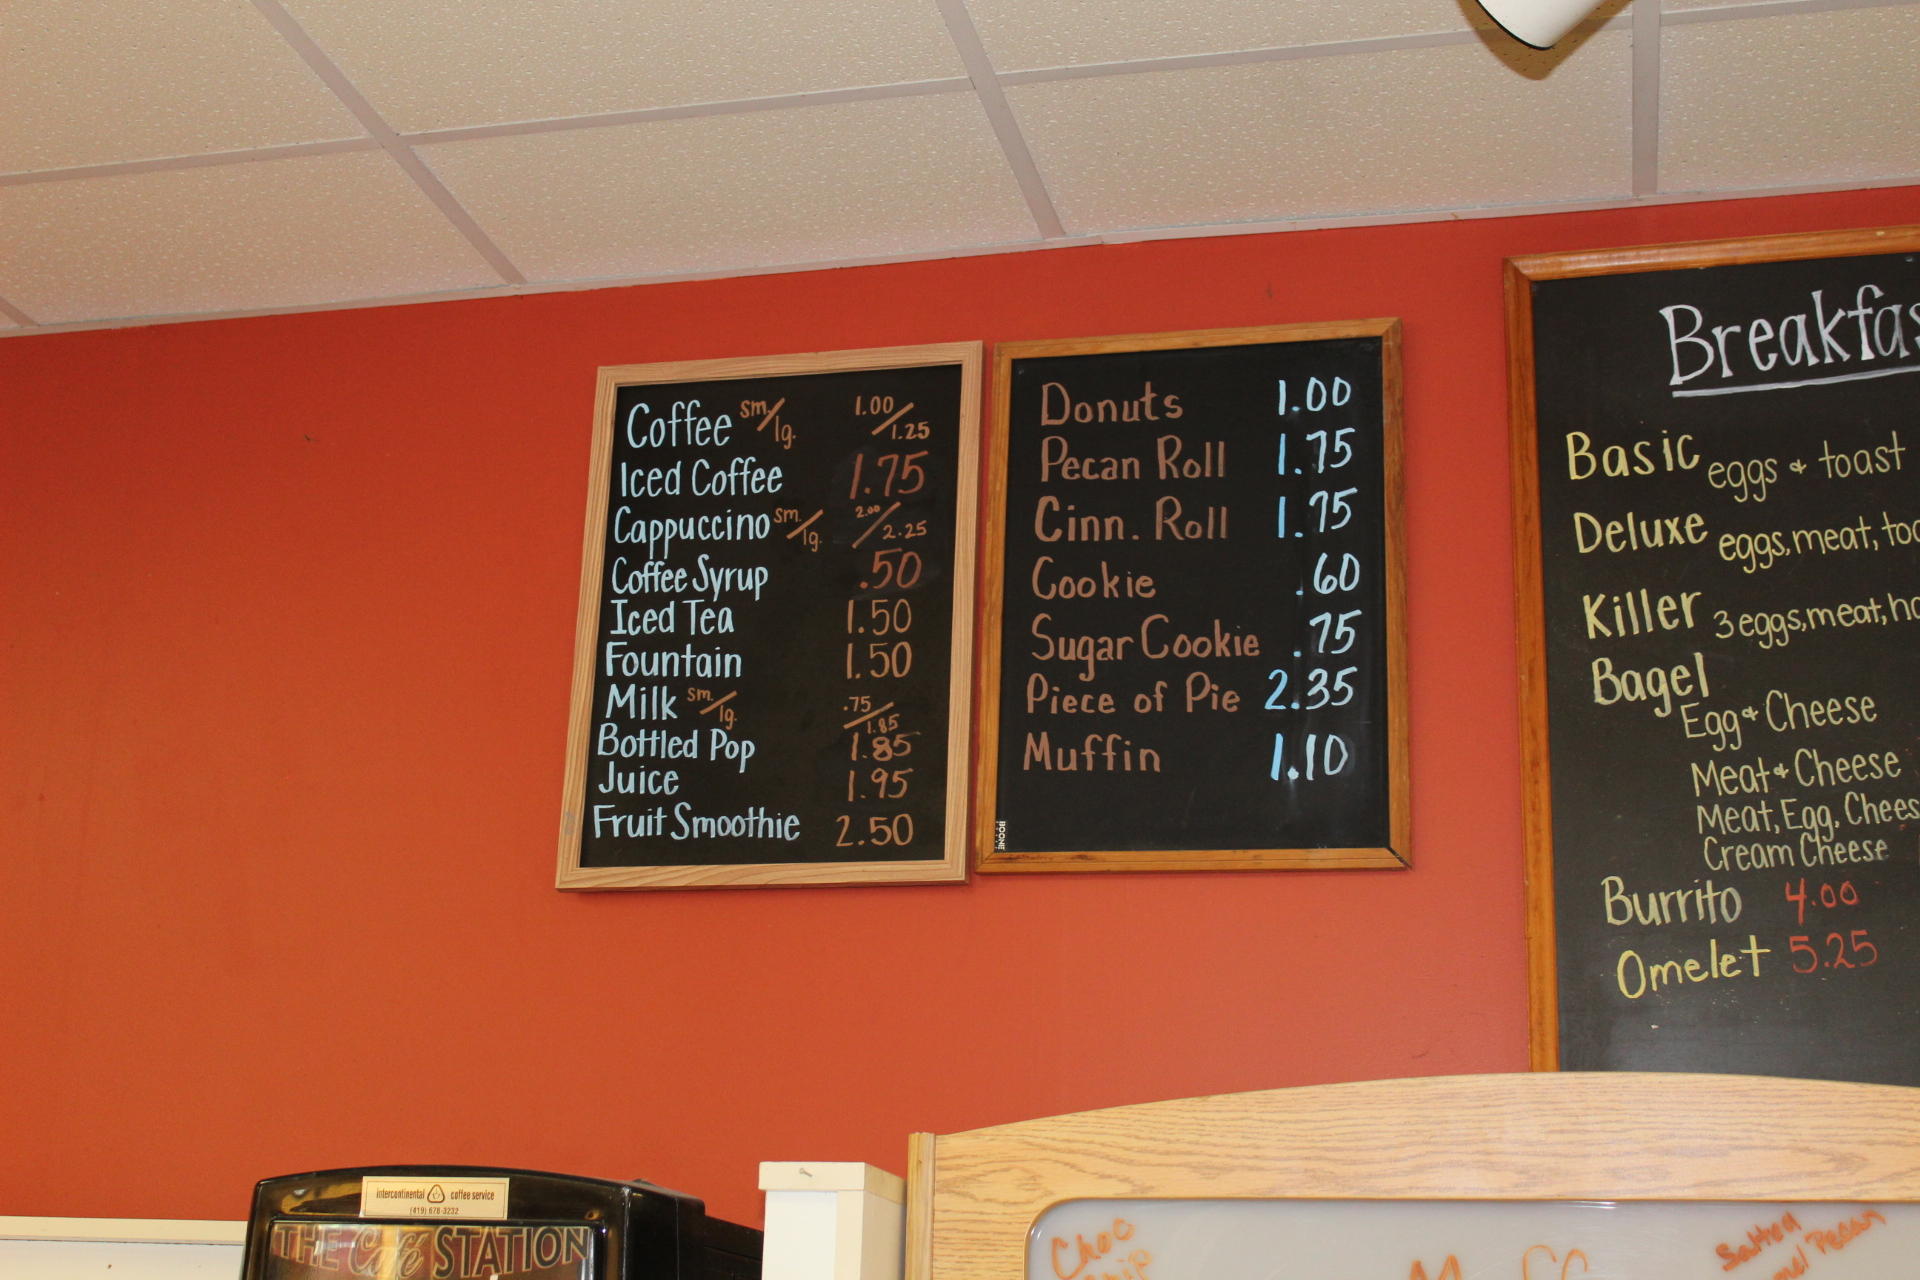 Coffee sm./lg. 1.00/1.25
Iced Coffee 1.75
Cappuccino sm./lg. 2.00/2.25
Coffee Syrup .50
Iced Tea 1.50
Fountain 1.50
Milk sm./lg. .75/1.85
Bottled Pop 1.85
Juice 1.95
Fruit Smoothie 2.50
Donuts 1.00
Pecan Roll 1.75
Cinn. Roll 1.75
Cookie .60
Sugar Cookie .75
Piece of Pie 2.35
Muffin 1.10
BOONE
Breakfas
Basic eggs & toast
Deluxe eggs, meat, toa
Killer 3 eggs, meat, ho
Bagel
Egg & Cheese
Meat & Cheese
Meat, Egg, Chees
Cream Cheese
Burrito 4.00
Omelet 5.25
intercontinental coffee service
(419) 678-3232
THE Café STATION
Choc
Chip
Salted
Pecan